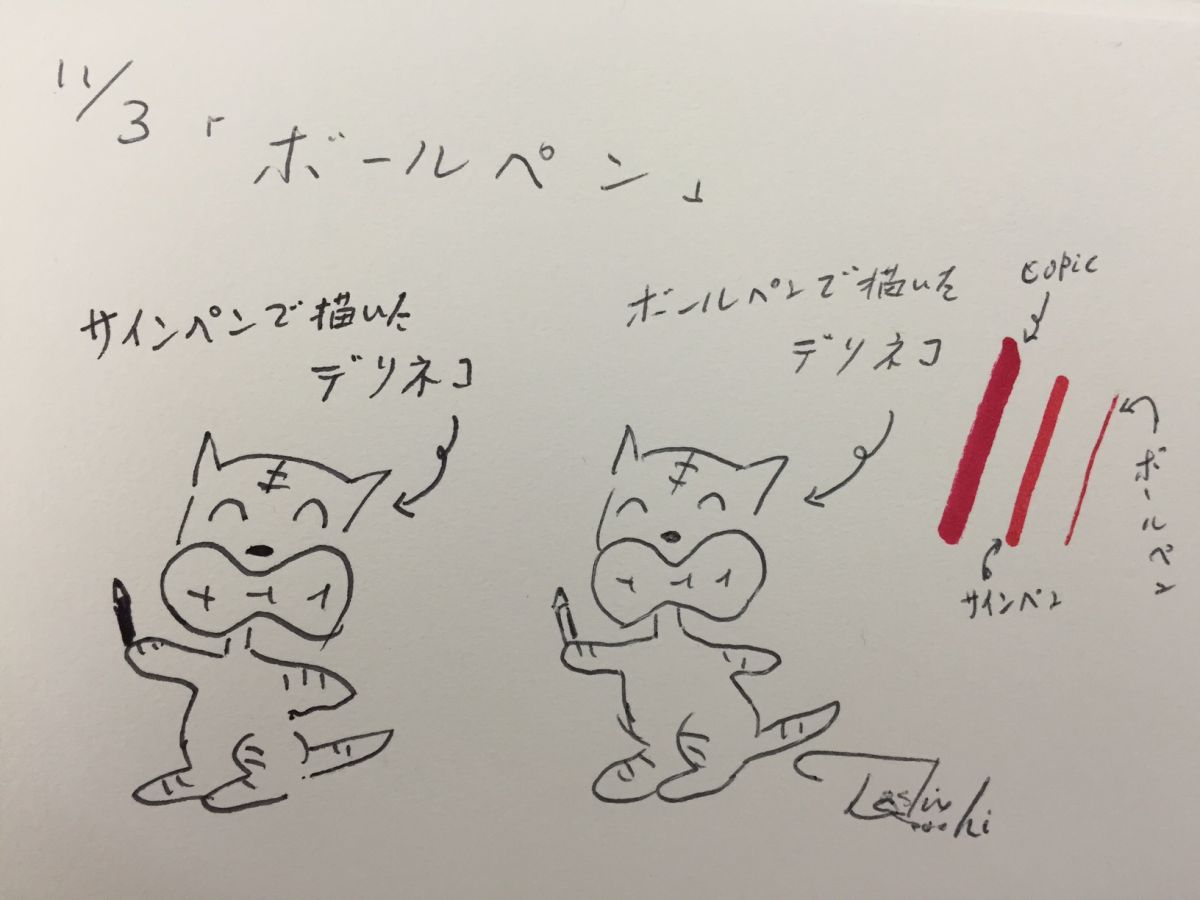 11/3「ボールペン」
サインペンで描いた
デリネコ
ボールペンで描いた
デリネコ
copic
ボールペン
サインペン